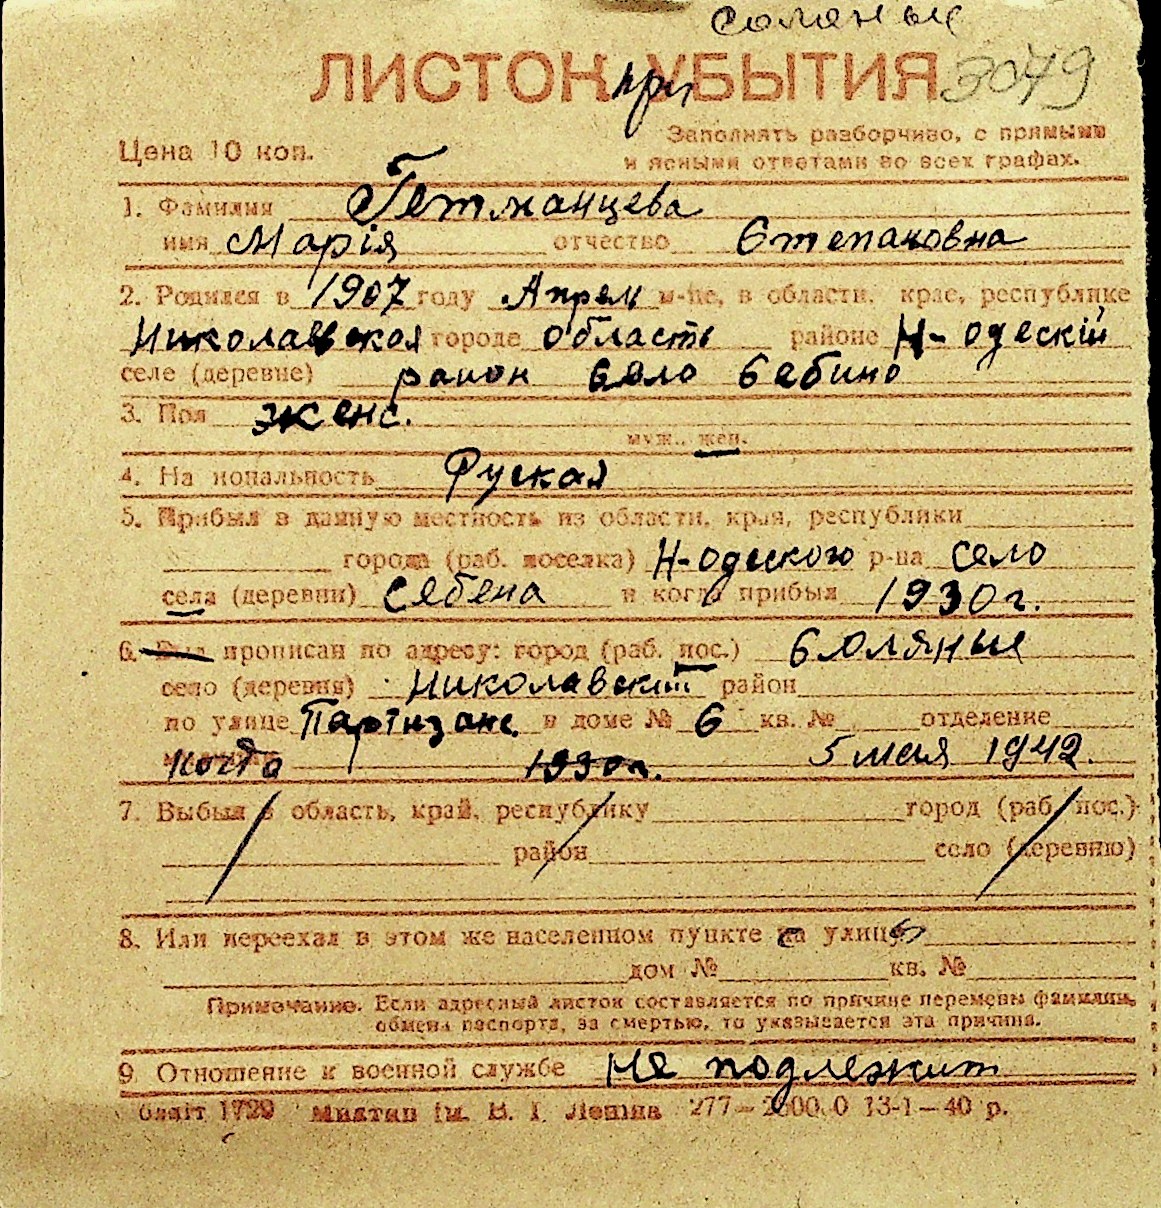 Соляные
ЛИСТОК при УБЫТИЯ 3049
Цена 10 коп.
Заполнять разборчиво, с прямыми
и ясными ответами во всех графах.
1. Фамилия Гетманцева
имя Марія отчество Степановна
2. Родился в 1907 году Апрел м-це, в области, крае, республике
Николаевская городе область районе Н-одескій
селе (деревне) раион село Себино
3. Пол женс.
муж., жен.
4. Национальность Руская
5. Прибыл в данную местность из области, края, республики
города (раб. поселка) Н-одеского р-на село
села (деревни) Себена и когда прибыл 1930 г.
6. Был прописан по адресу: город (раб. пос.) Соляные
село (деревня) Николавский район
по улице Партизанс. в доме № 6 кв. № отделение
когда 1930 г. 5 мая 1942.
7. Выбыл в область, край, республику город (раб. пос.)
район село (деревню)
8. Или переехал в этом же населенном пункте на улицу
дом № кв. №
Примечание. Если адресный листок составляется по причине перемены фамилии,
обмена паспорта, за смертью, то указывается эта причина.
9. Отношение к военной службе не подлежит
1729 Миктип ім. В. І. Леніна 277—260000 13-1—40 р.